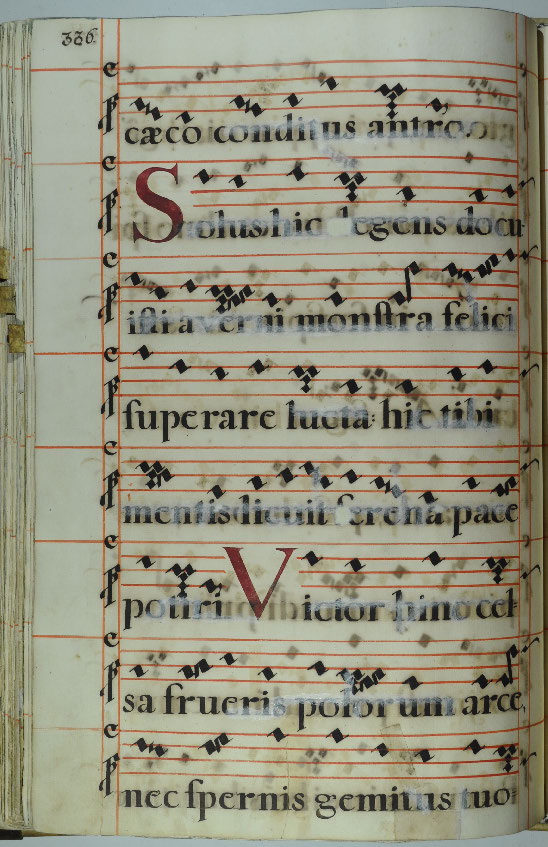 336
cæco conditus antro
Solus hic degens docu
isti averni monstra felici
superare lucta: hic tibi
mentis licuit serena pace
potiri Victor hinc cel-
sa frueris polorum arce,
nec spernis gemitus tuo